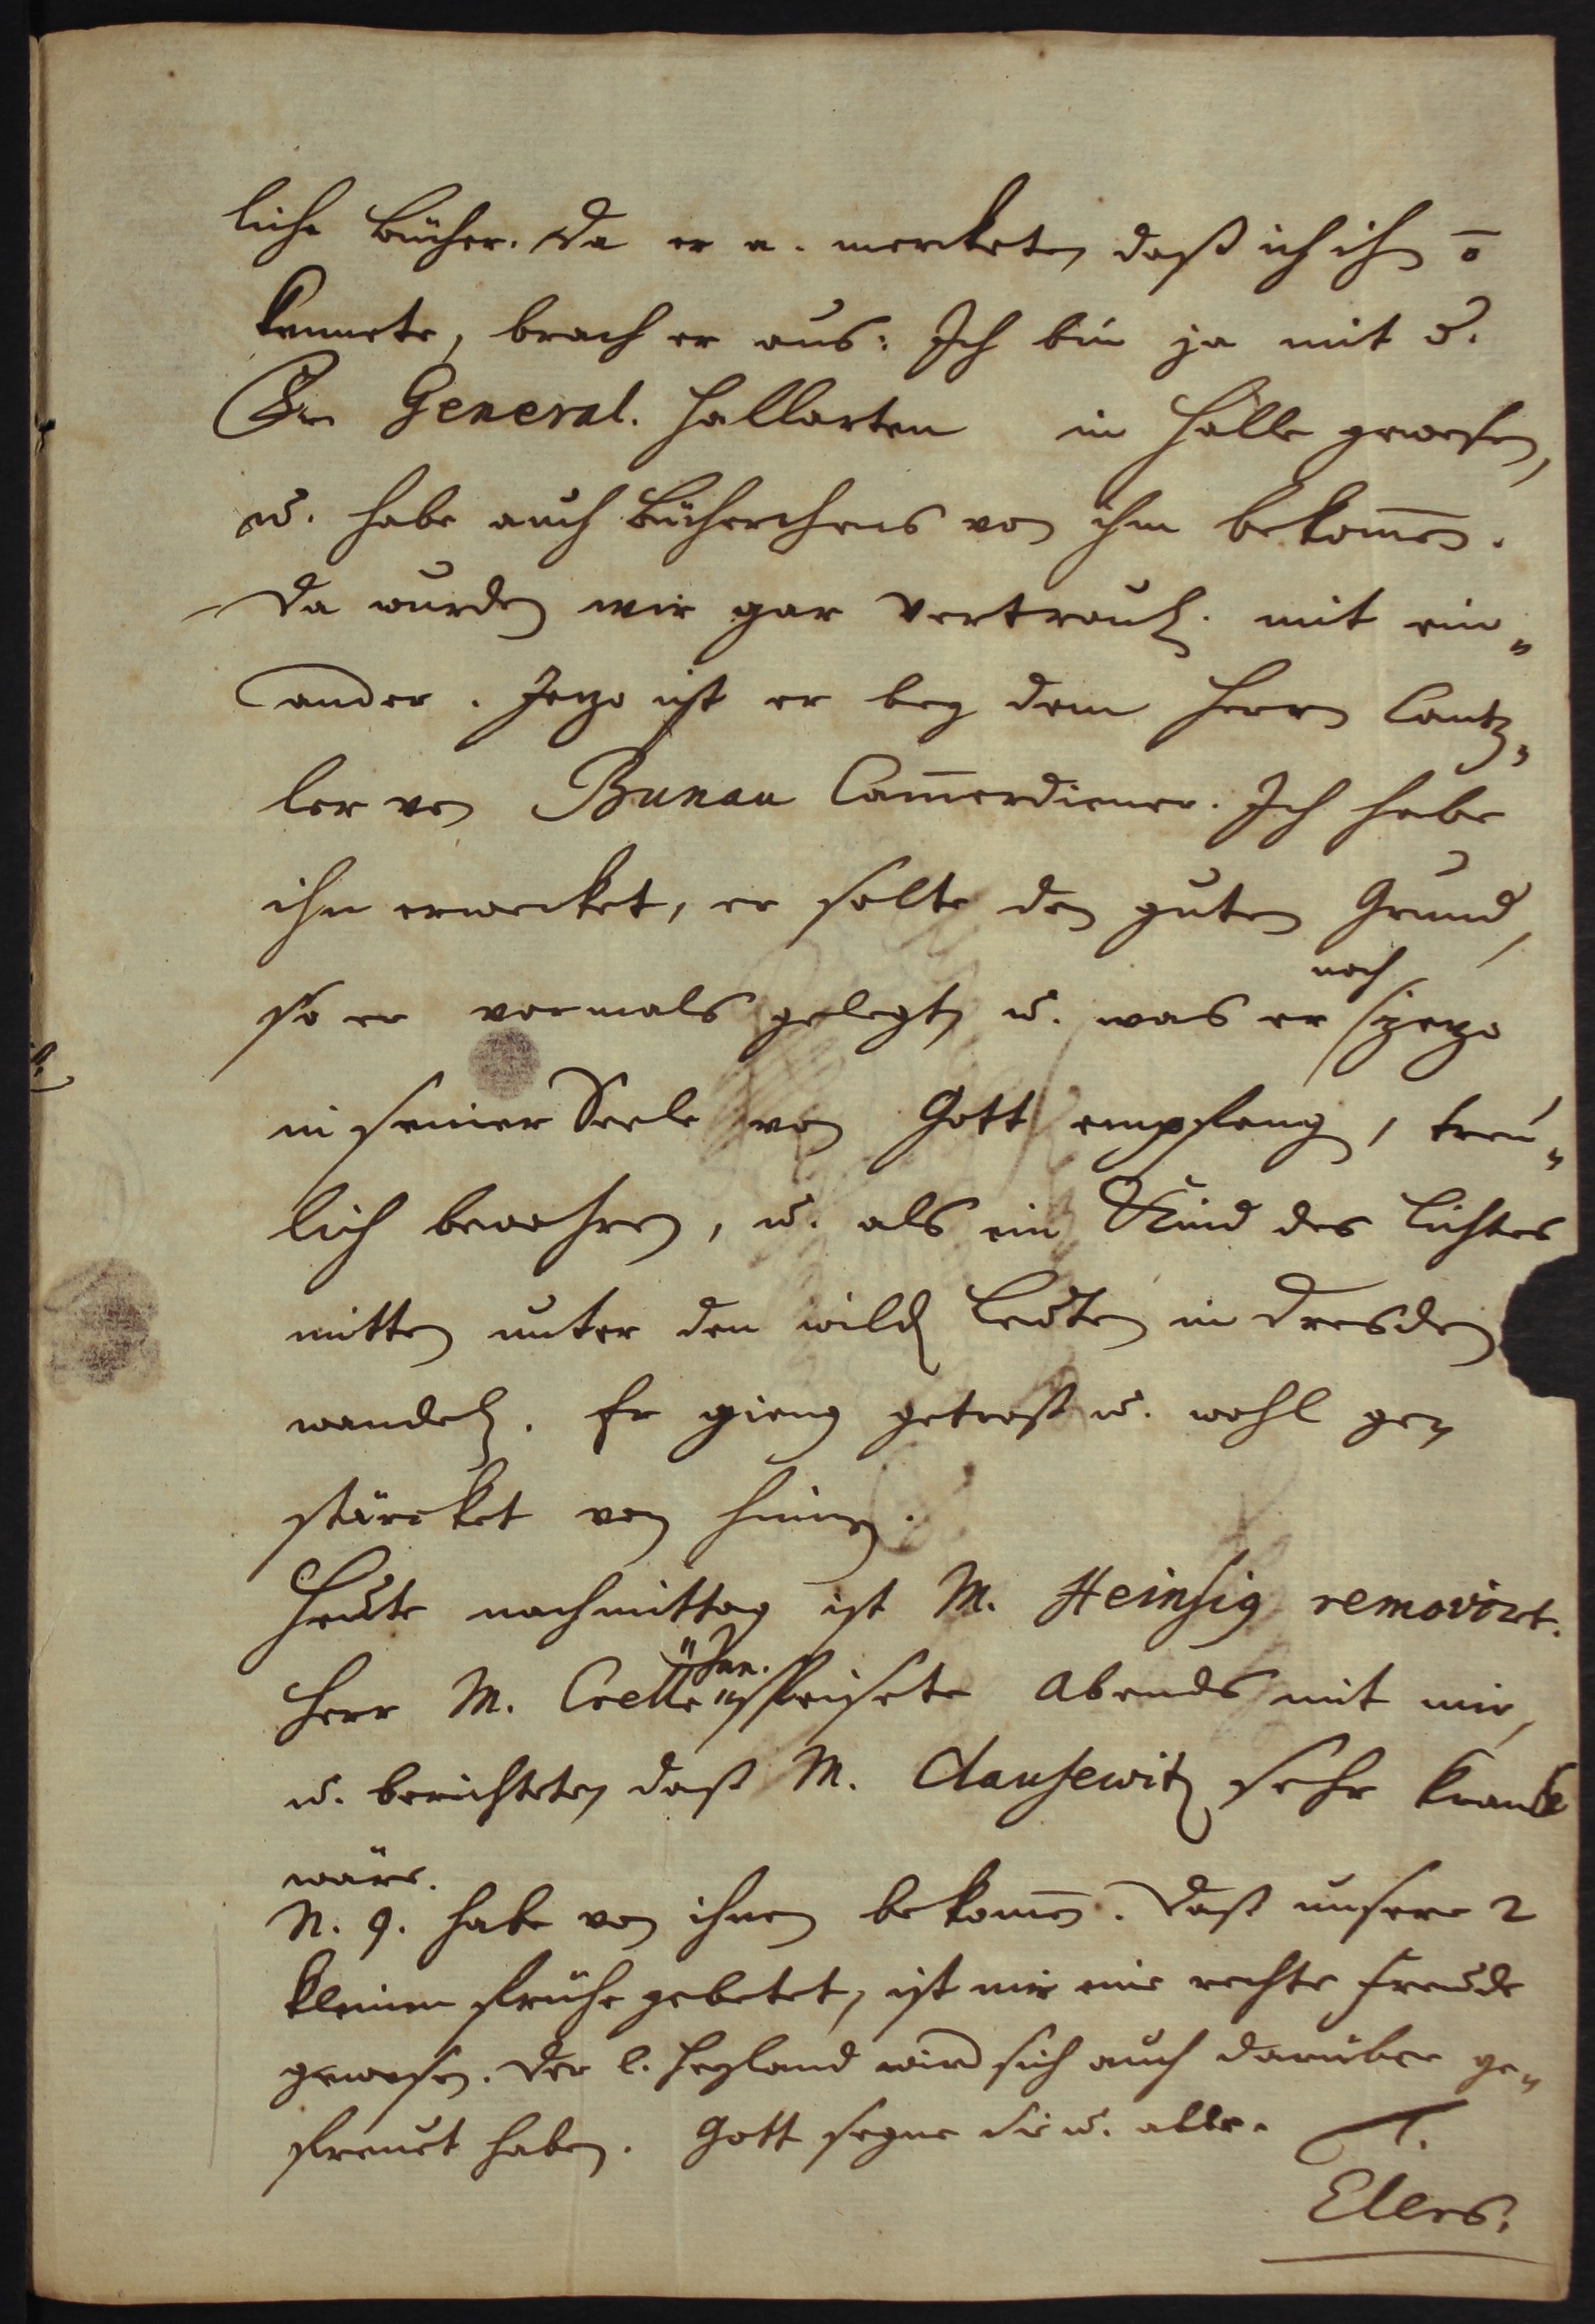 liche Bücher. Da er a. merckete, daß ich ihn ō
kennete, brach er aus: Ich bin ja mit d.
Fr. General. Hallarten in Halle gewesen,
u. habe auch Bücherchens von ihm bekom̄en.
Da wurden wir gar vertraul. mit ein„
ander. Jetzo ist er bey dem Herrn Cantz„
ler von Bunau Cam̄erdiener. Ich habe
ihn erwecket, er solte den guten Grund,
so er vormals gelegt, u. was er noch jetzo
in seiner Seele von Gott empfang, treu„
lich bewahren, u. als ein Kind des Lichtes
mitten unter den wilden Leuten in Dresden
wandeln. Er gieng getrost u. wohl ge„
stärcket von hinnen.
Heute nachmittag ist M. Heinsig removirt.
Herr M. Crelle Jun. speisete Abends mit mir,
u. berichtete, daß M. Clausewitz sehr kranck
wäre.
N. 9. habe von ihnen bekom̄en. Daß unsere 2
kleinen frühe gebetet, ist mir eine rechte Freude
gewesen. Der l. Heyland wird sich auch darüber ge„
freuet haben. Gott segne sie u. alle.
Elers.